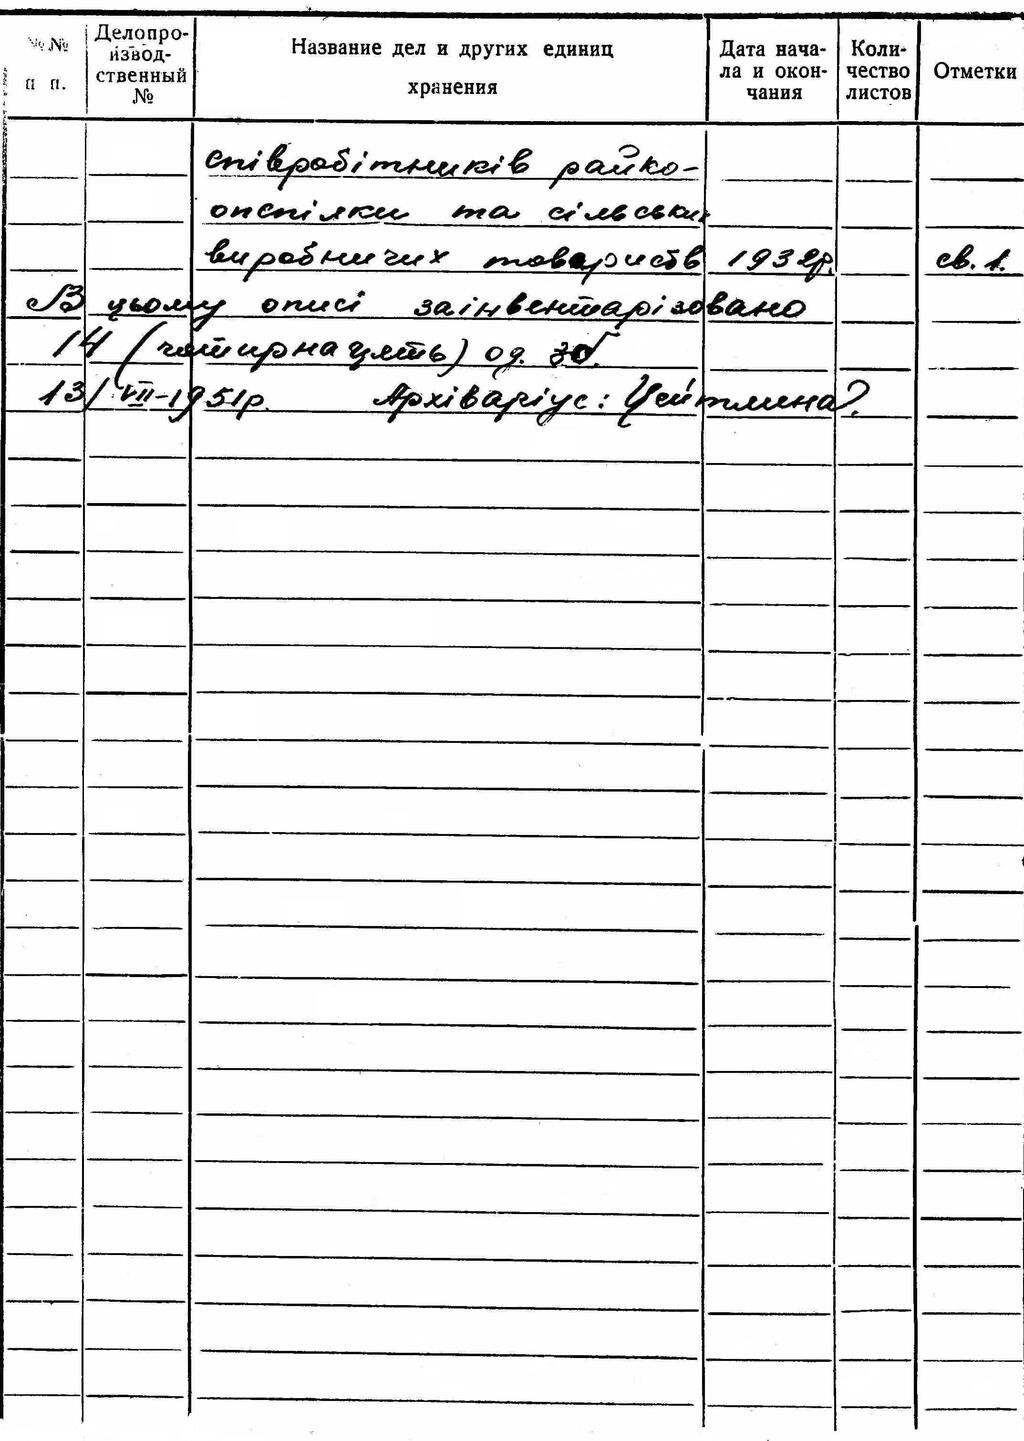 №№ п п.
Делопро-
извод-
ственный
№
Название дел и других единиц
хранения
Дата нача-
ла и окон-
чания
Коли-
чество
листов
Отметки
співробітників райко-
опспілки та сільських
виробничих товариств 1932р. св. 1.
В цьому описі заінвентарізовано
14 (чотирнацять) од. зб.
13/VII-1951р. Архіваріус: Цейтлина